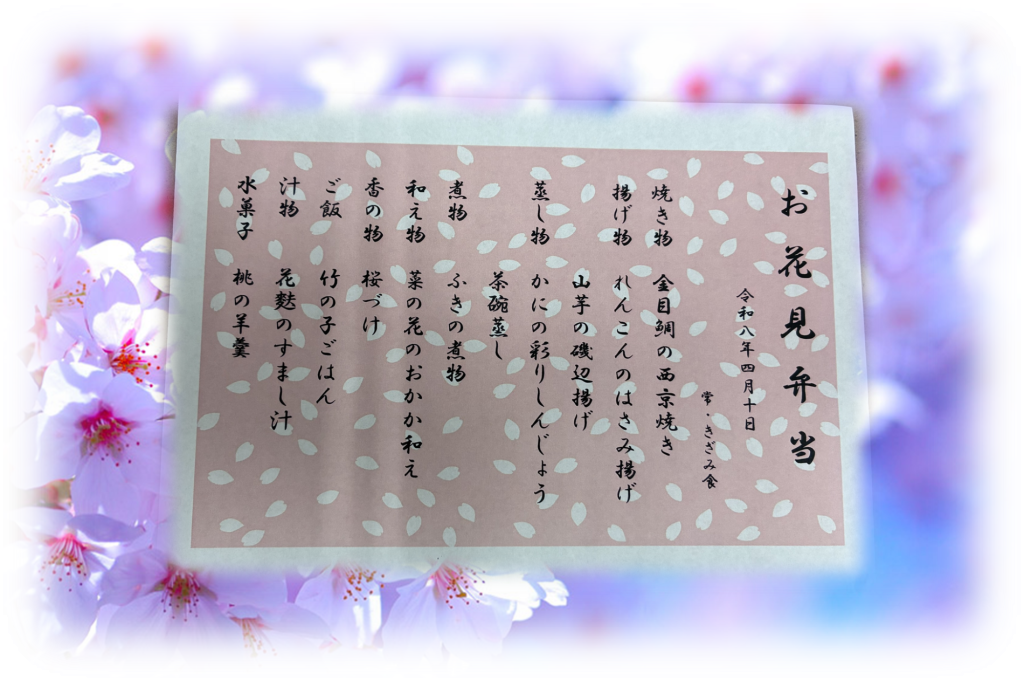 お花見弁当
令和八年四月十日
常・きざみ食
焼き物 金目鯛の西京焼き
揚げ物 れんこんのはさみ揚げ
山芋の磯辺揚げ
蒸し物 かにの彩りしんじょう
茶碗蒸し
煮物 ふきの煮物
和え物 菜の花のおかか和え
香の物 桜づけ
ご飯 竹の子ごはん
汁物 花麩のすまし汁
水菓子 桃の羊羹